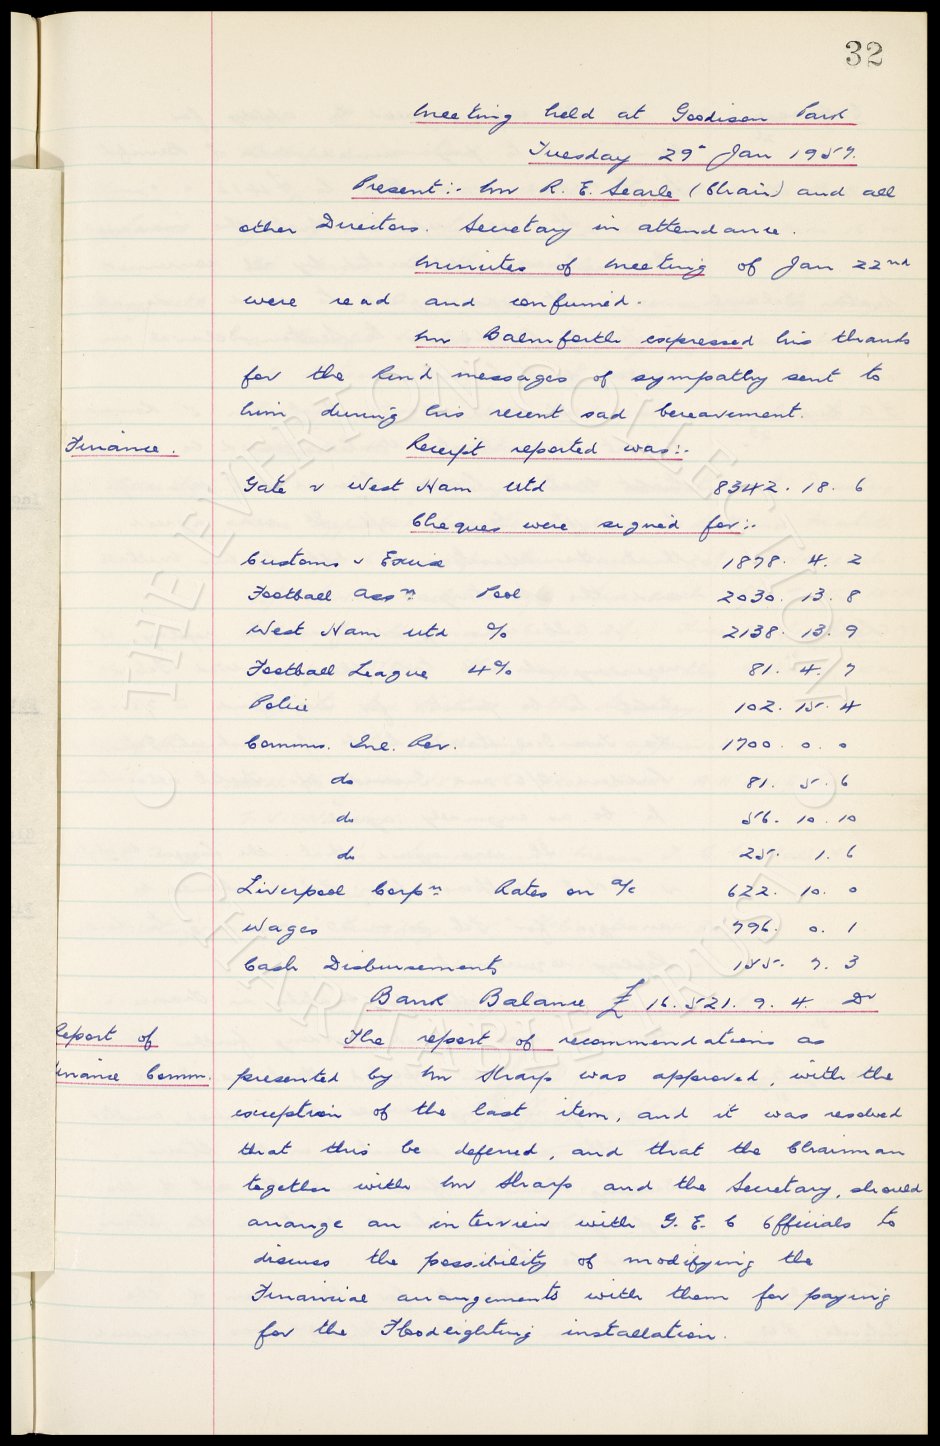 32
Meeting held at Goodison Park
Tuesday 29th Jan 1957.
Present:- Mr R. E. Searle (Chair) and all
other Directors. Secretary in attendance.
Minutes of Meeting of Jan 22nd
were read and confirmed.
Mr Balmforth expressed his thanks
for the kind messages of sympathy sent to
him during his recent sad bereavement.
Finance. Receipt reported was:-
Gate v West Ham Utd 8342. 18. 6
Cheques were signed for:-
Customs & Excise 1878. 4. 2
Football Assn. Pool 2030. 13. 8
West Ham Utd % 2138. 13. 9
Football League 4% 81. 4. 7
Police 102. 15. 4
Comms. Inl. Rev. 1700. 0. 0
do 81. 5. 6
do 56. 10. 10
do 25. 1. 6
Liverpool Corpn Rates on a/c 622. 10. 0
Wages 796. 0. 1
Cash Disbursements 155. 7. 3
Bank Balance £16.521. 9. 4. Dr
Report of The report of recommendations as
Finance Comm. presented by Mr Sharp was approved, with the
exception of the last item, and it was resolved
that this be deferred, and that the Chairman
together with Mr Sharp and the Secretary, should
arrange an interview with G. E. C Officials to
discuss the possibility of modifying the
Financial arrangements with them for paying
for the Floodlighting installation.
© THE EVERTON COLLECTION ©
CHARITABLE TRUST